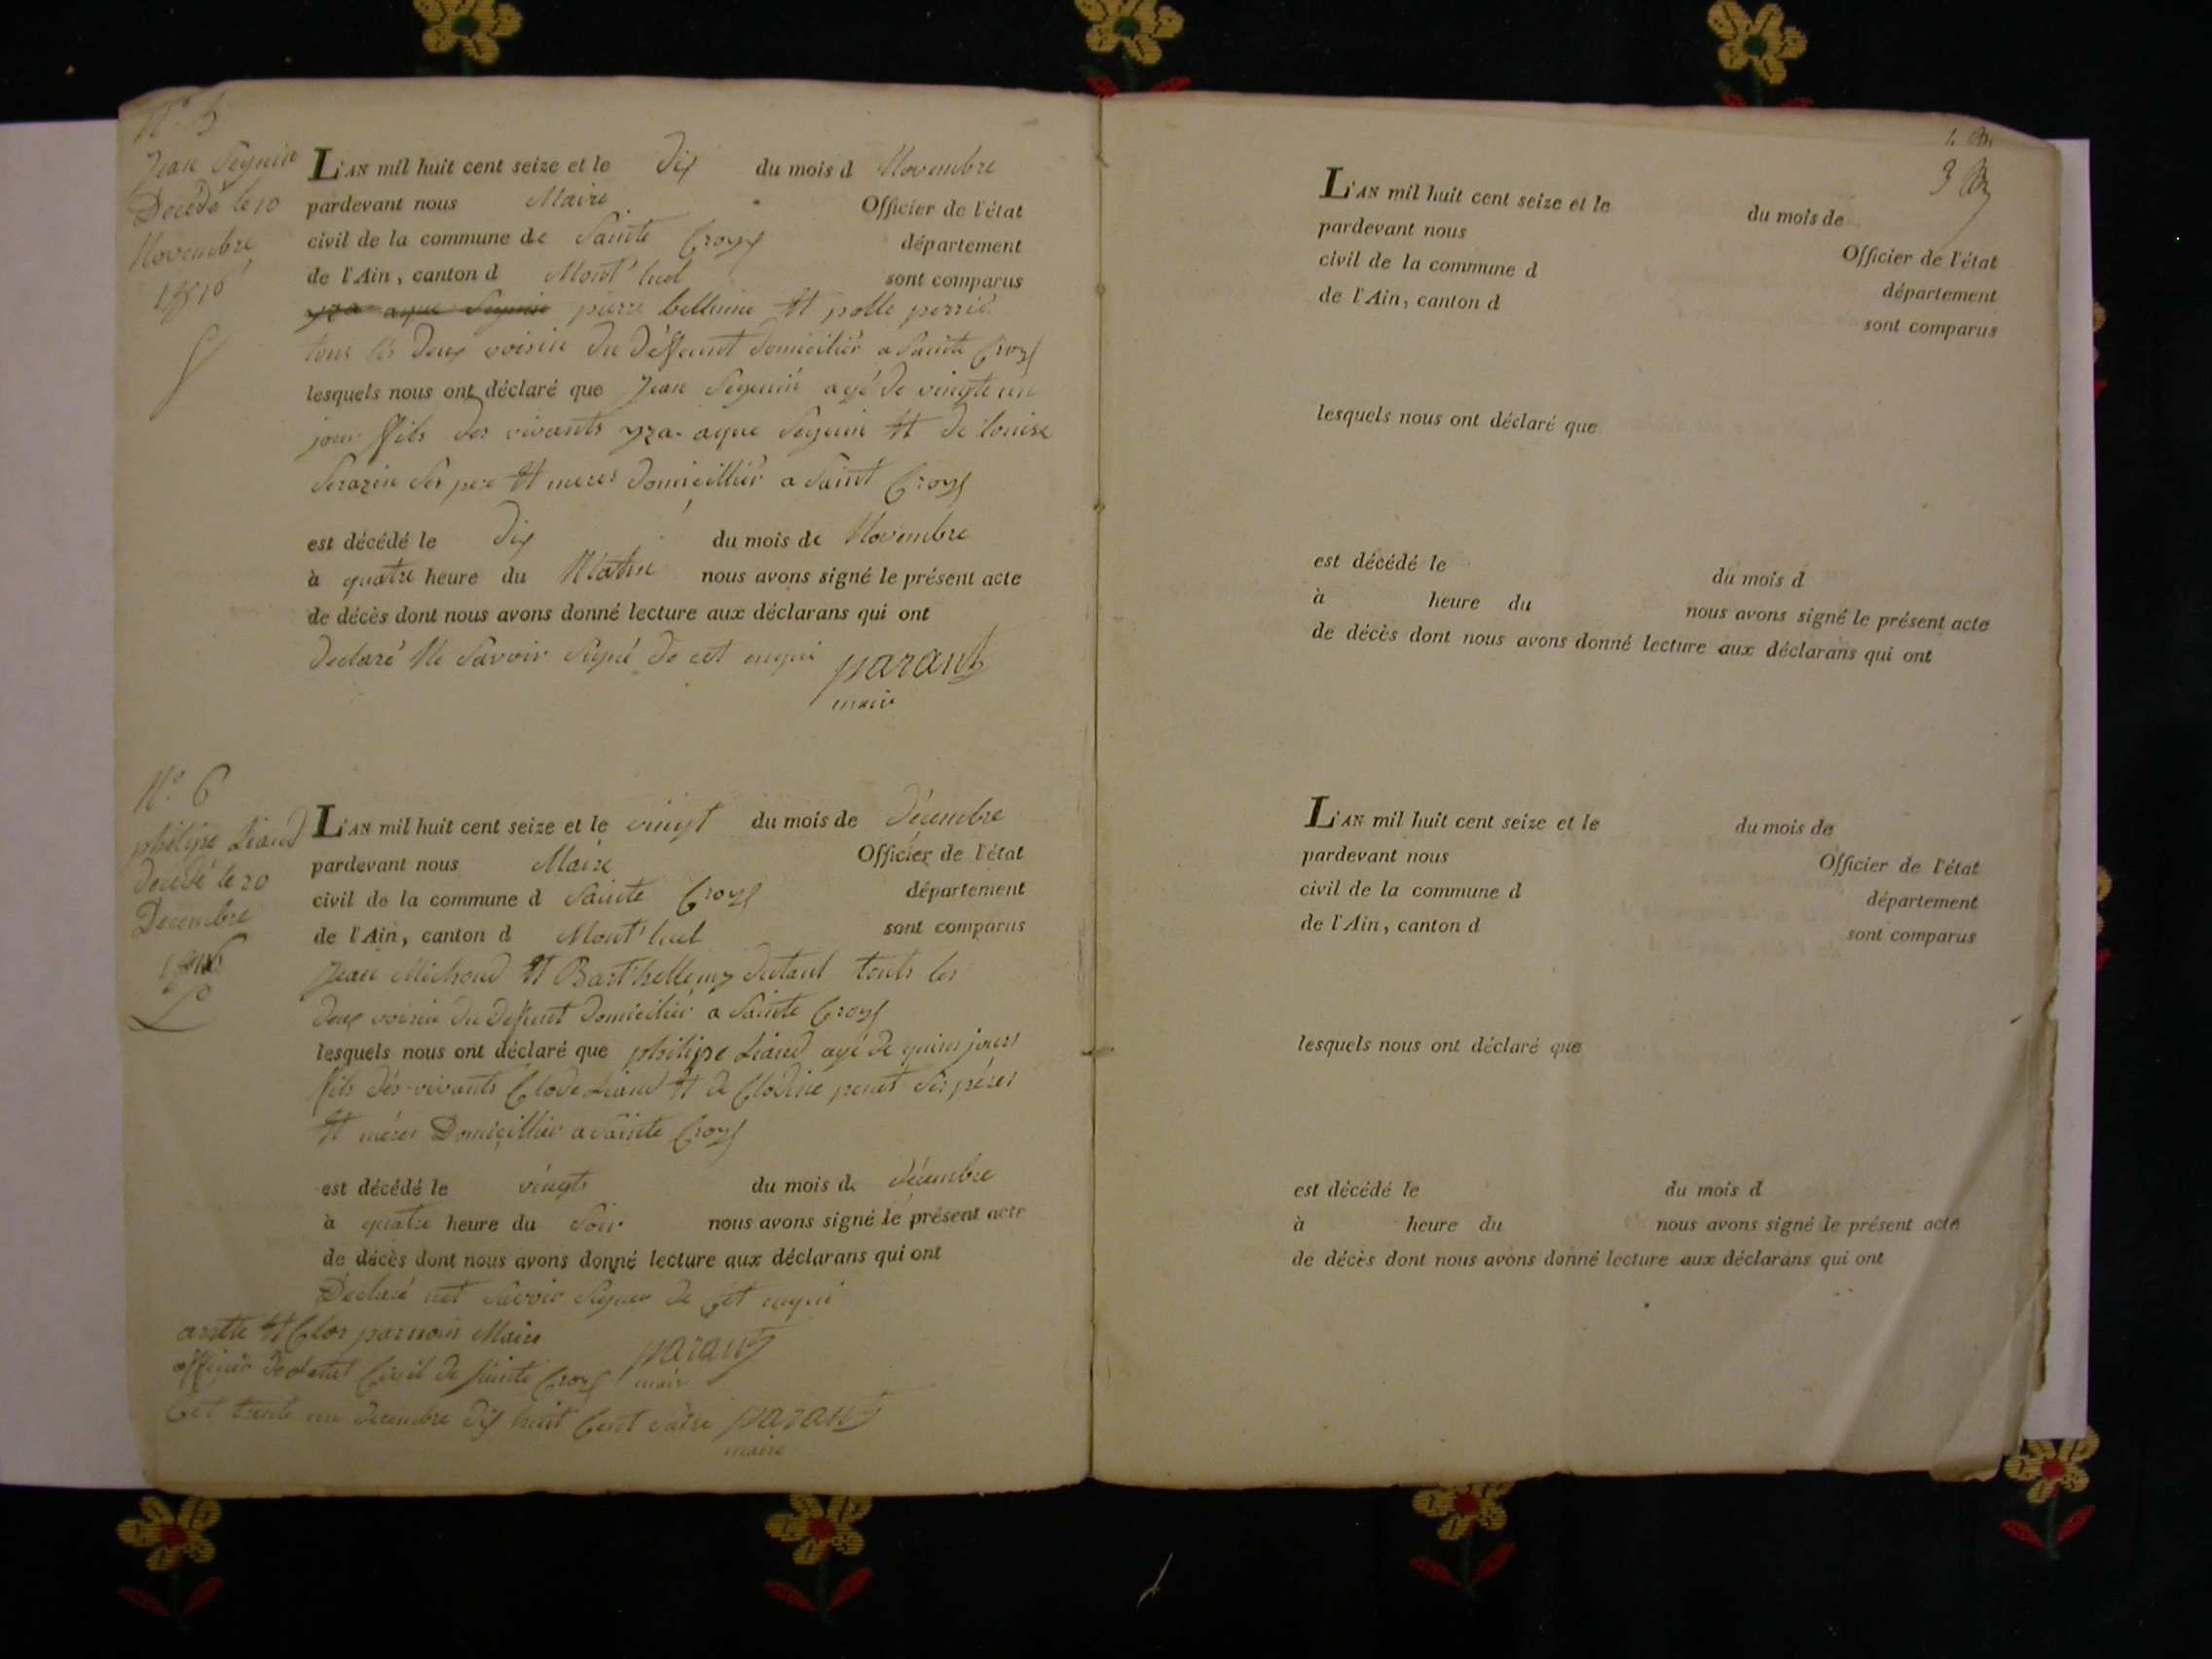 N.º 5
Jean Seguin
Décédé le 10
Novembre
1816
L'AN mil huit cent seize et le dix du mois d Novembre
pardevant nous Maire Officier de l'état
civil de la commune de Sainte Croix département
de l'Ain, canton d Mont'luel sont comparus
pierre belleme et polle perrié
tous les deux voisin du déffunt domicilier a Sainte Croix
lesquels nous ont déclaré que Jean Seguin agé de vingte un
jour ffils des vivants Seguin et de louise
Serazin Ses pere et meres domicillier a Saint Croix
est décédé le dix du mois de Novembre
à quatre heure du Matin nous avons signé le présent acte
de décès dont nous avons donné lecture aux déclarans qui ont
declaré Ne Savoir Signé de cet enqui parant
maire
N.º 6
philipe Liaud
decedé le 20
Decembre
1816
L'AN mil huit cent seize et le vingt du mois de décembre
pardevant nous Maire Officier de l'état
civil de la commune d Sainte Croix département
de l'Ain, canton d Mont'luel sont comparus
Jean Michoud et Barthellemy dutant touts les
deux voisin du defunt domicilier a Sainte Croix
lesquels nous ont déclaré que philipe Liaud agé de quinze jours
fils dés vivants Clode Liaud et de Clodine penet Ses péres
et méres Domicillier a Sainte Croix
est décédé le vingts du mois d décembre
à quatre heure du Soir nous avons signé le présent acte
de décès dont nous avons donné lecture aux déclarans qui ont
Déclaré net Savoir Signer de Cet enqui
arette et Clos par nous Maire parant
officier de Letat Civil de Sainte Croix maire
Cet trente un decembre dix huit Cent saize parant
maire
3
L'AN mil huit cent seize et le du mois de
pardevant nous Officier de l'état
civil de la commune d département
de l'Ain, canton d sont comparus
lesquels nous ont déclaré que
est décédé le du mois d
à heure du nous avons signé le présent acte
de décès dont nous avons donné lecture aux déclarans qui ont
L'AN mil huit cent seize et le du mois de
pardevant nous Officier de l'état
civil de la commune d département
de l'Ain, canton d sont comparus
lesquels nous ont déclaré que
est décédé le du mois d
à heure du nous avons signé le présent acte
de décès dont nous avons donné lecture aux déclarans qui ont